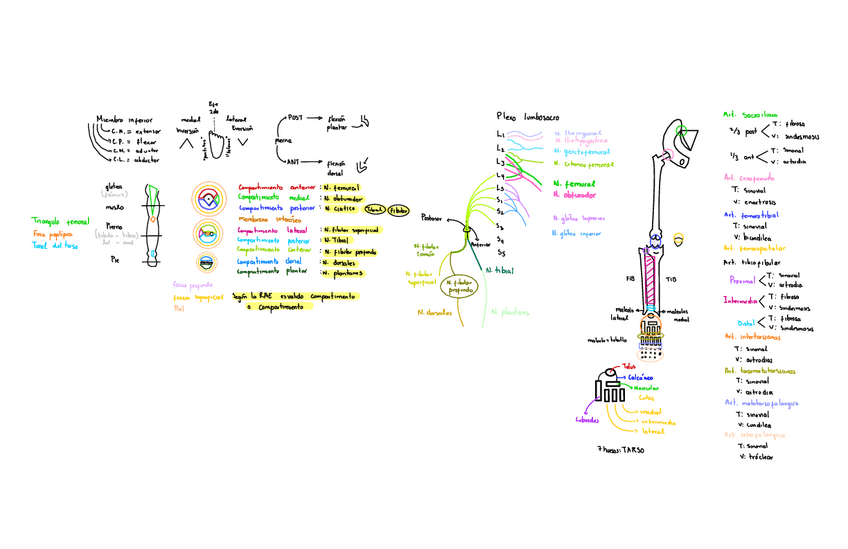 Miembro inferior
C.A. = extensor
C.P. = flexor
C.M. = aductor
C.L. = abductor
Eje
2do
medial
lateral
Inversión
Eversión
POST → flexión
plantar
pierna
ANT → flexión
dorsal
glútea
(fémur)
muslo
Pierna
(fíbula - tibia)
lat - med
Pie
Triángulo femoral
Fosa poplítea
Túnel del tarso
Compartimiento anterior: N. femoral
Compartimiento medial: N. obturador
Compartimiento posterior: N. ciático
tibial
fibular
Membrana interósea
Compartimiento lateral: N. fibular superficial
Compartimiento posterior: N. Tibial
Compartimiento anterior: N. fibular profundo
Compartimiento dorsal: N. dorsales
Compartimiento plantar: N. plantares
fascia profunda
fascia superficial
Piel
Según la RAE es valido compartimento
o compartimiento
Plexo lumbosacro
L1
L2
L3
L4
L5
S1
S2
S3
S4
S5
N. Iliohipogástrico
N. genitofemoral
N. cutáneo femoral
N. femoral
N. obturador
N. glúteo superior
N. glúteo inferior
Posterior
Anterior
N. fibular
común
N. fibular
superficial
N. fibular
profundo
N. tibial
N. dorsales
N. plantares
FIB
TIB
maleolo
lateral
maleolos
medial
Talus
Calcáneo
Navicular
Cuñas
medial
intermedia
lateral
Cuboides
7 huesos: TARSO
Art. Sacroiliaca
2/3 post
T: fibrosa
V: sindesmosis
1/3 ant
T: sinovial
V: artrodia
Art. Coxofemoral
T: sinovial
V: enartrosis
Art. femorotibial
T: sinovial
V: bicondilea
Art. femoropatelar
Art. tibiofibular
Proximal
T: sinovial
V: artrodia
Intermedia
T: fibrosa
V: sindesmosis
Distal
T: fibrosa
V: sindesmosis
Art. intertarsianas
T: sinovial
V: artrodias
Art. tarsometatarsianas
T: sinovial
V: artrodia
Art. metatarsofalangica
T: sinovial
V: condilea
Art. interfalangica
T: sinovial
V: tróclear